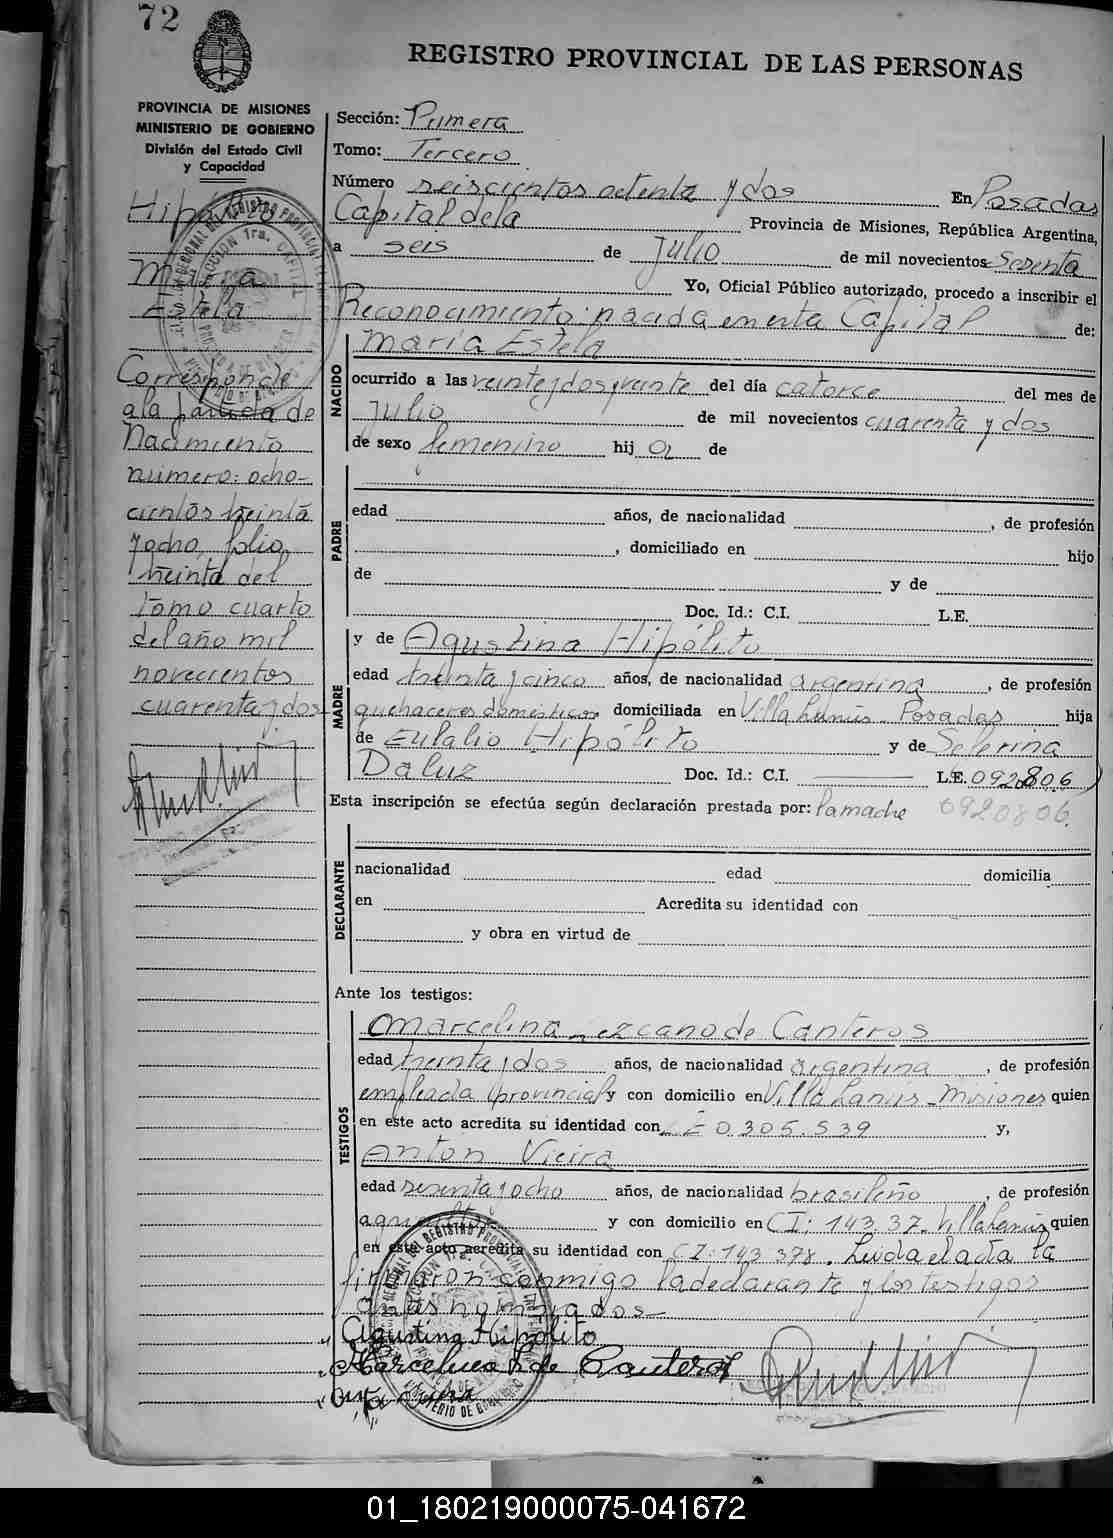 72
REGISTRO PROVINCIAL DE LAS PERSONAS
PROVINCIA DE MISIONES
MINISTERIO DE GOBIERNO
División del Estado Civil
y Capacidad
Hipólito
María
Estela
Corresponde
a la partida de
Nacimiento
número: ocho-
cientos treinta
y ocho, folio
treinta del
tomo cuarto
del año mil
novecientos
cuarenta y dos
Sección: Primera
Tomo: Tercero
Número seiscientos setenta y dos En Posadas
Capital de la Provincia de Misiones, República Argentina,
a seis de Julio de mil novecientos Sesenta
Yo, Oficial Público autorizado, procedo a inscribir el
Reconocimiento: nacida en esta Capital de:
NACIDO
María Estela
ocurrido a las veinte y dos y veinte del día catorce del mes de
Julio de mil novecientos cuarenta y dos
de sexo femenino hij a de
PADRE
edad años, de nacionalidad , de profesión
, domiciliado en hijo
de y de
Doc. Id.: C.I. L.E.
MADRE
y de Agustina Hipólito
edad treinta y cinco años, de nacionalidad argentina , de profesión
quehaceres domésticos domiciliada en Villa Lanús - Posadas hija
de Eulalio Hipólito y de Selerina
Daluz Doc. Id.: C.I. L.E. 0920806
Esta inscripción se efectúa según declaración prestada por: la madre 0920806.
DECLARANTE
nacionalidad edad domicilia
en Acredita su identidad con
y obra en virtud de
Ante los testigos:
TESTIGOS
Marcelina Lezcano de Canteros
edad treinta y dos años, de nacionalidad argentina , de profesión
empleada provincial y con domicilio en Villa Lanús - Misiones quien
en este acto acredita su identidad con L E 0.305.539 y,
Anton Vieira
edad sesenta y ocho años, de nacionalidad brasileño , de profesión
y con domicilio en CI: 143 37. Villa Lanús quien
en este acto acredita su identidad con C I: 143 378. Leida el acta la
firmaron conmigo la declarante y los testigos
antes nominados-
Agustina Hipolito
Marcelina L de Canteros
01_180219000075-041672